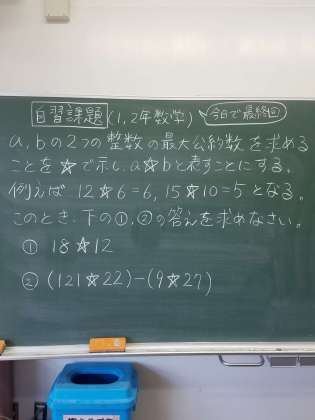 自習課題(1,2年数学) 今日で最終回
a,bの2つの整数の最大公約数を求める
ことを☆で示し、a☆bと表すことにする。
例えば 12☆6=6, 15☆10=5 となる。
このとき、下の①,②の答えを求めなさい。
① 18☆12
② (121☆22)-(9☆27)